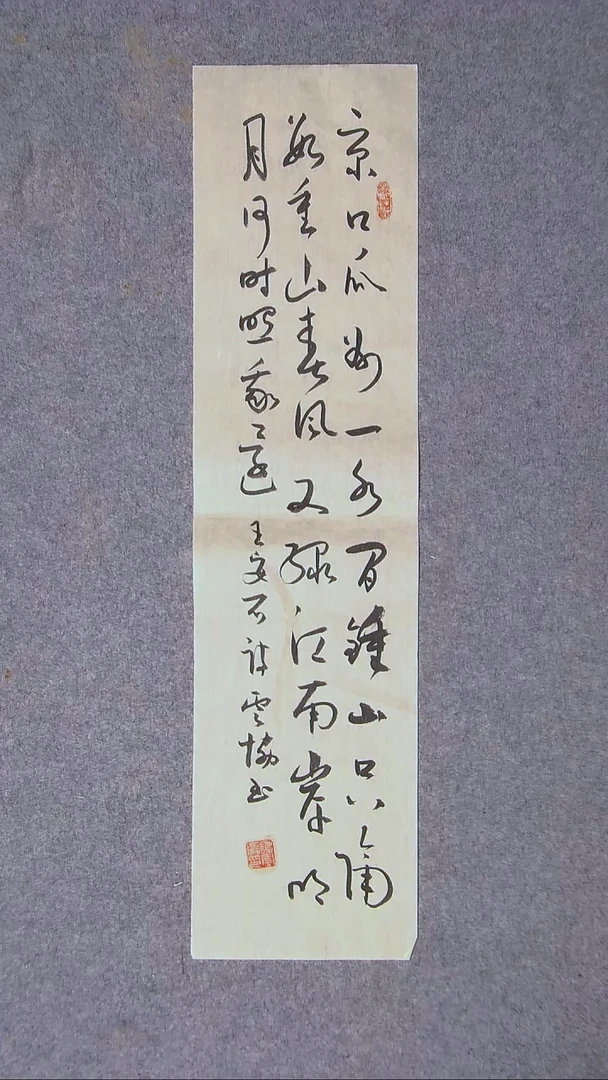 京口瓜洲一水间鍾山只隔
数重山春风又绿江南岸明
月何时照我还 王安石诗 雲 书